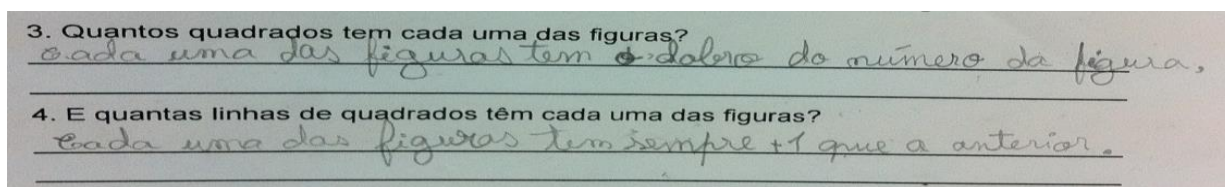 3. Quantos quadrados tem cada uma das figuras?
Cada uma das figuras tem o dobro do número da figura,
4. E quantas linhas de quadrados têm cada uma das figuras?
Cada uma das figuras tem sempre +1 que a anterior.